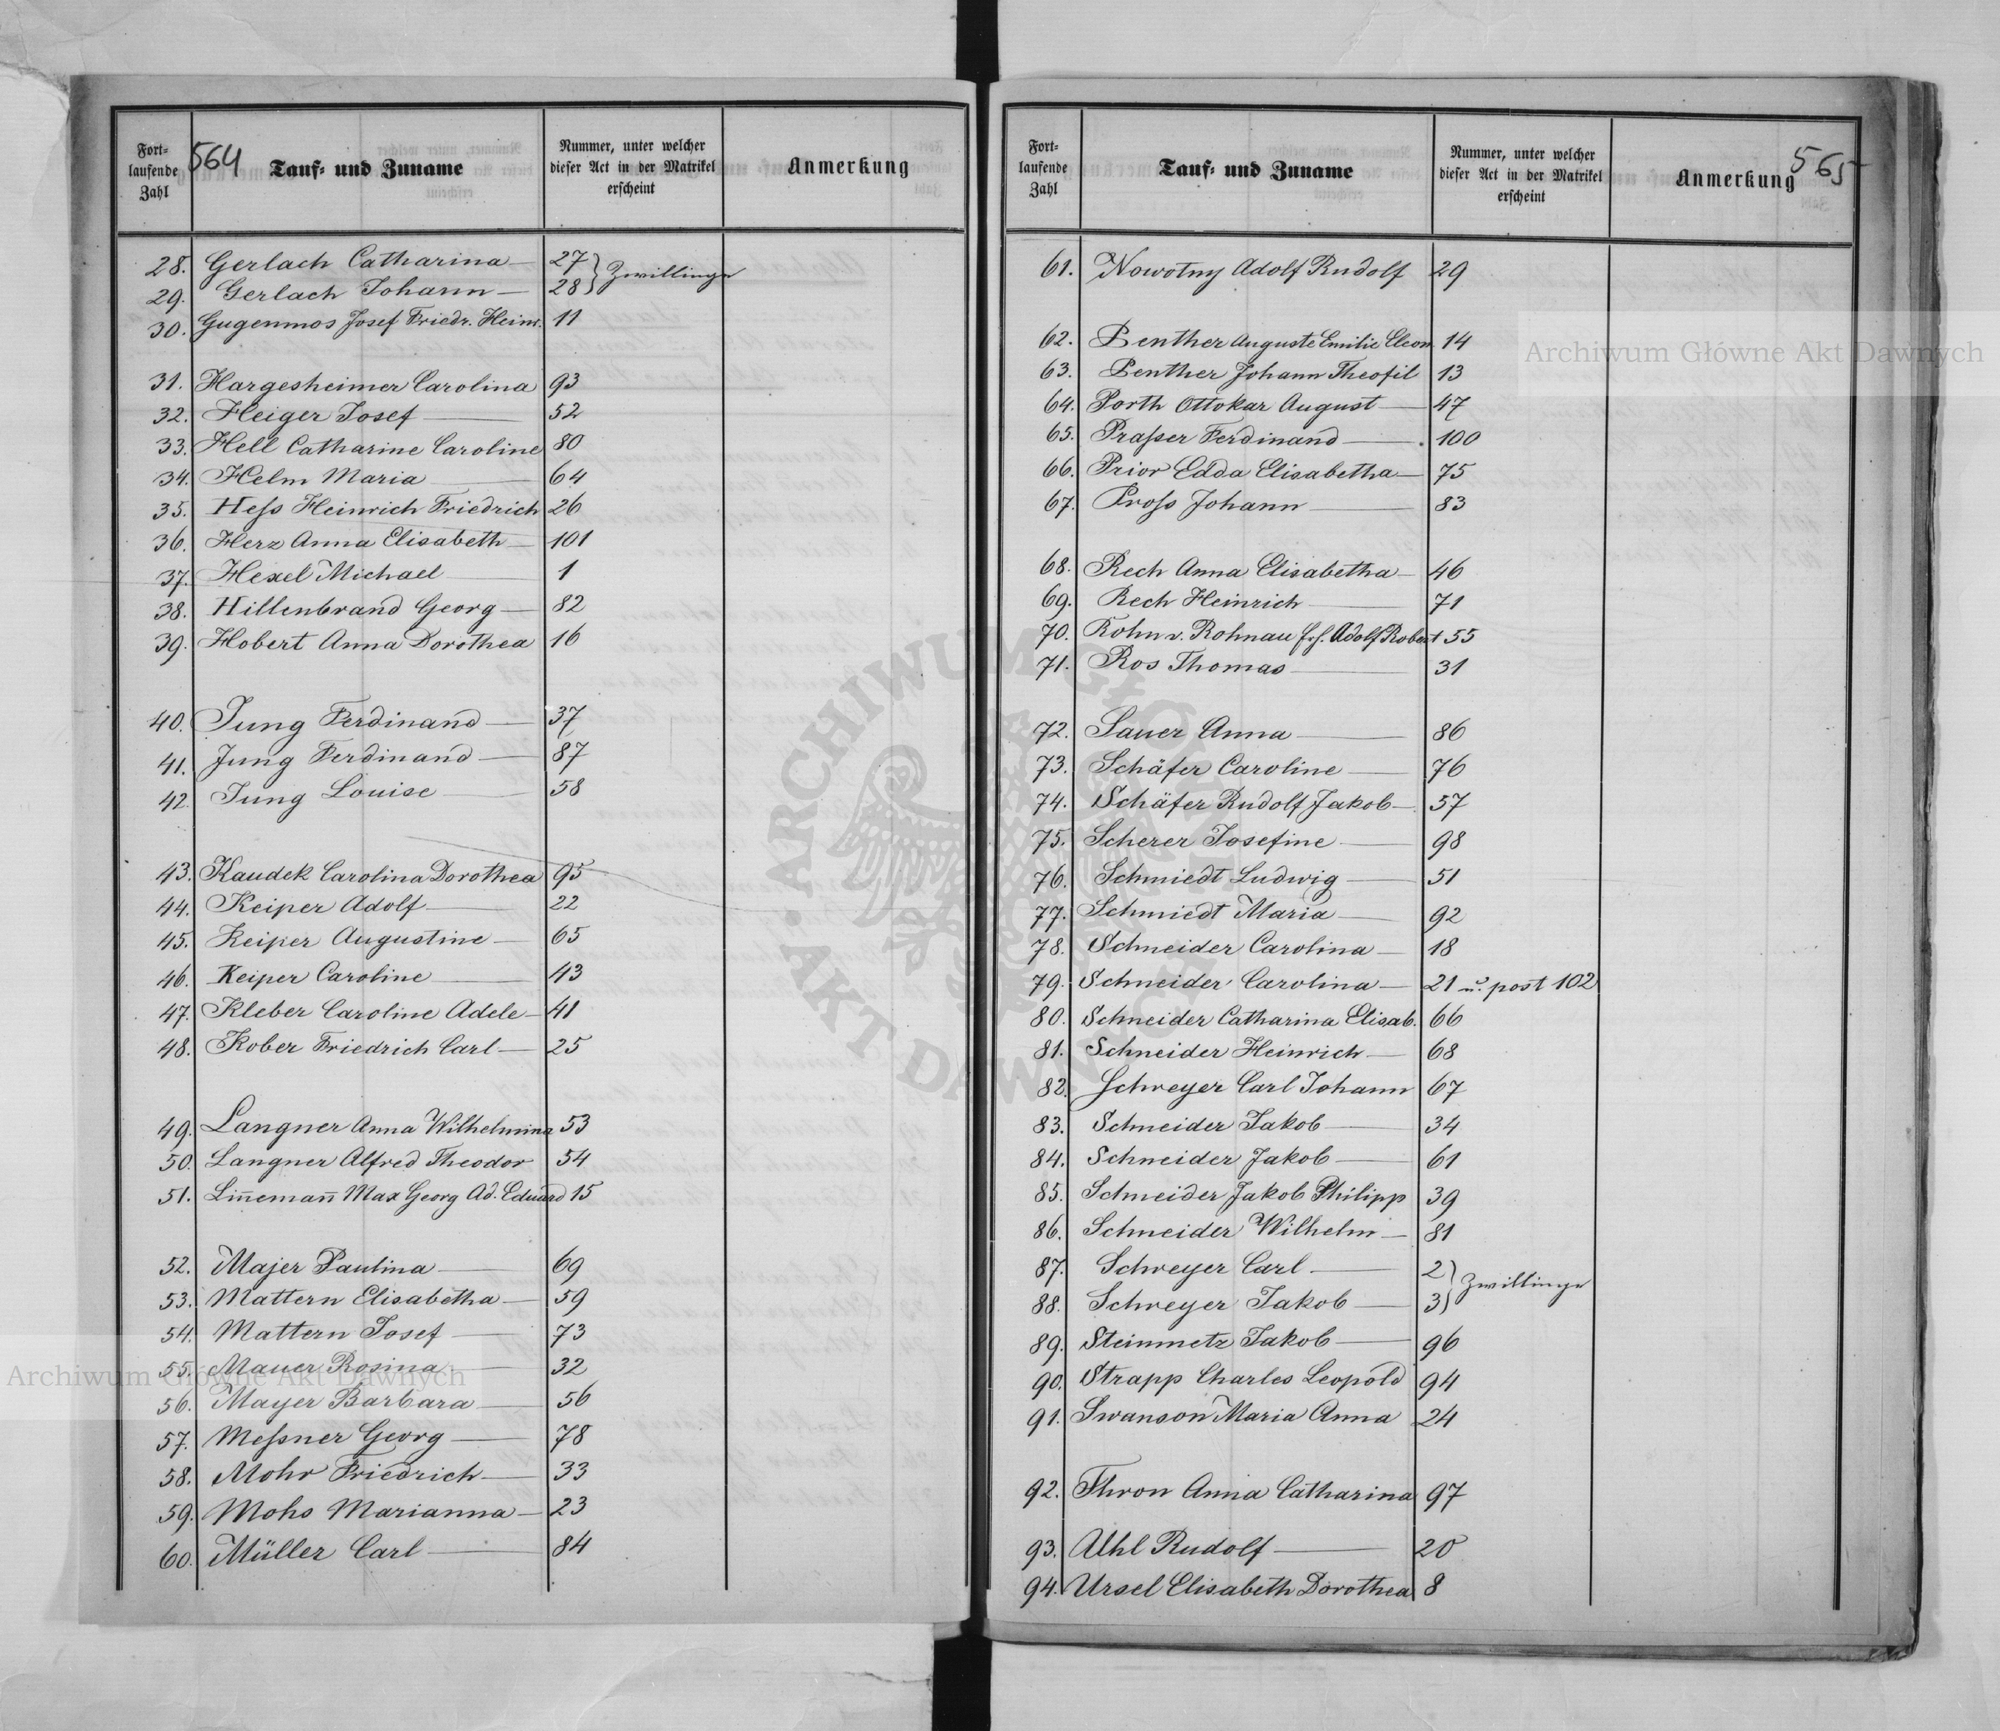 564
Fort-
laufende
Zahl
Tauf- und Zuname
Nummer, unter welcher
dieser Act in der Matrikel
erscheint
Anmerkung
28. Gerlach Catharina — 27 } Zwillinge
29. Gerlach Johann — 28
30. Gugenmos Josef Friedr. Heinr. 11
31. Hargesheimer Carolina 93
32. Heiger Josef — 52
33. Hell Catharine Caroline 80
34. Helm Maria — 64
35. Heſs Heinrich Friedrich 26
36. Herz Anna Elisabeth — 101
37. Hexel Michael 1
38. Hillenbrand Georg — 82
39. Hobert Anna Dorothea 16
40. Jung Ferdinand — 37
41. Jung Ferdinand — 87
42. Jung Louise — 58
43. Kaudek Carolina Dorothea 95
44. Keiper Adolf — 22
45. Keiper Augustine — 65
46. Keiper Caroline — 43
47. Kleber Caroline Adele — 41
48. Kober Friedrich Carl — 25
49. Langner Anna Wilhelmina 53
50. Langner Alfred Theodor 54
51. Lin̄eman̄ Max Georg Ad. Eduard 15
52. Majer Paulina — 69
53. Mattern Elisabetha — 59
54. Mattern Josef — 73
55. Mauer Rosina — 32
56. Mayer Barbara — 56
57. Meſsner Georg — 78
58. Mohr Friedrich — 33
59. Mohs Marianna — 23
60. Müller Carl — 84
565
Fort-
laufende
Zahl
Tauf- und Zuname
Nummer, unter welcher
dieser Act in der Matrikel
erscheint
Anmerkung
61. Nowotny Adolf Rudolf 29
62. Penther Auguste Emilie Eleon. 14
63. Penther Johann Theofil 13
64. Porth Ottokar August — 47
65. Praſser Ferdinand — 100
66. Prior Edda Elisabetha — 75
67. Proſs Johann — 83
68. Rech Anna Elisabetha — 46
69. Rech Heinrich — 71
70. Rohn v. Rohnau Adolf Robert 55
71. Ros Thomas — 31
72. Sauer Anna — 86
73. Schäfer Caroline — 76
74. Schäfer Rudolf Jakob — 57
75. Scherer Josefine — 98
76. Schmiedt Ludwig — 51
77. Schmiedt Maria — 92
78. Schneider Carolina — 18
79. Schneider Carolina — 21 u. post 102
80. Schneider Catharina Elisab. 66
81. Schneider Heinrich — 68
82. Schreyer Carl Johann 67
83. Schneider Jakob — 34
84. Schneider Jakob — 61
85. Schneider Jakob Philipp 39
86. Schneider Wilhelm — 81
87. Schreyer Carl — 2 } Zwillinge
88. Schreyer Jakob — 3
89. Steinmetz Jakob — 96
90. Strapp Charles Leopold 94
91. Swanson Maria Anna 24
92. Thron Anna Catharina 97
93. Uhl Rudolf — 20
94. Ursel Elisabeth Dorothea 8
Archiwum Główne Akt Dawnych
Archiwum Główne Akt Dawnych
ARCHIWUM GŁÓWNE AKT DAWNYCH